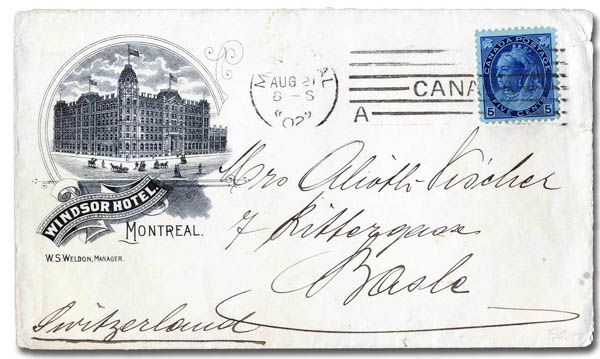 MONTREAL
AUG 21
8-S
"02"
CANADA
A
CANADA POSTAGE
5 FIVE CENTS 5
WINDSOR HOTEL.
MONTREAL.
W.S. WELDON, MANAGER.
Mrs Alioth-Vischer
7 Rittergasse
Basle
Switzerland